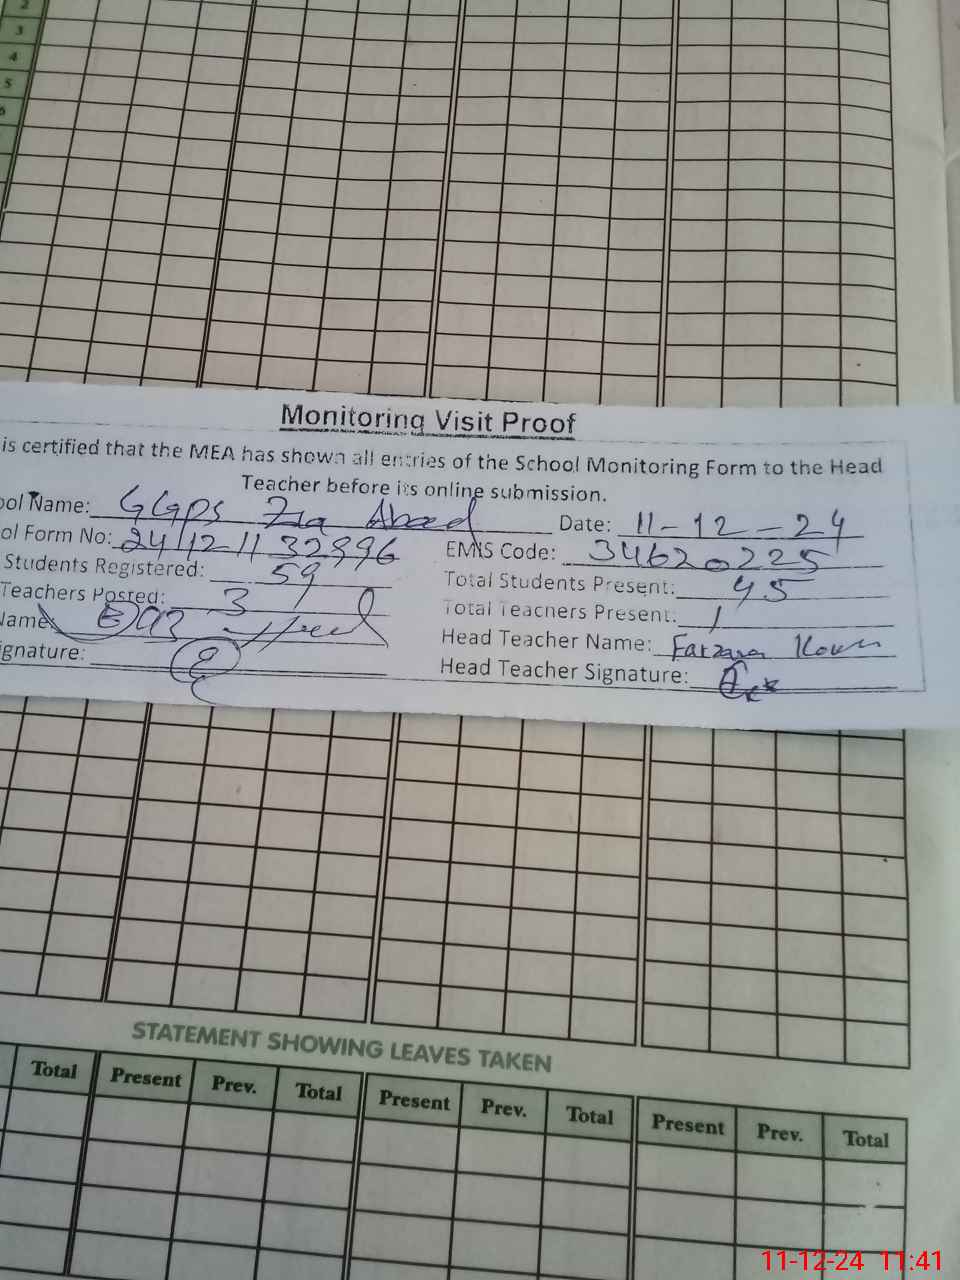 2
3
4
5
6
Monitoring Visit Proof
is certified that the MEA has shown all entries of the School Monitoring Form to the Head
Teacher before its online submission.
ool Name: GGPS Zia Abad Date: 11-12-24
ol Form No: 24121132996 EMIS Code: 34620225
Students Registered: 59 Total Students Present: 45
Teachers Posted: 3 Total Teachers Present: 1
Name: Head Teacher Name: Farzana
ignature: Head Teacher Signature:
STATEMENT SHOWING LEAVES TAKEN
Total Present Prev. Total Present Prev. Total Present Prev. Total
11-12-24 11:41